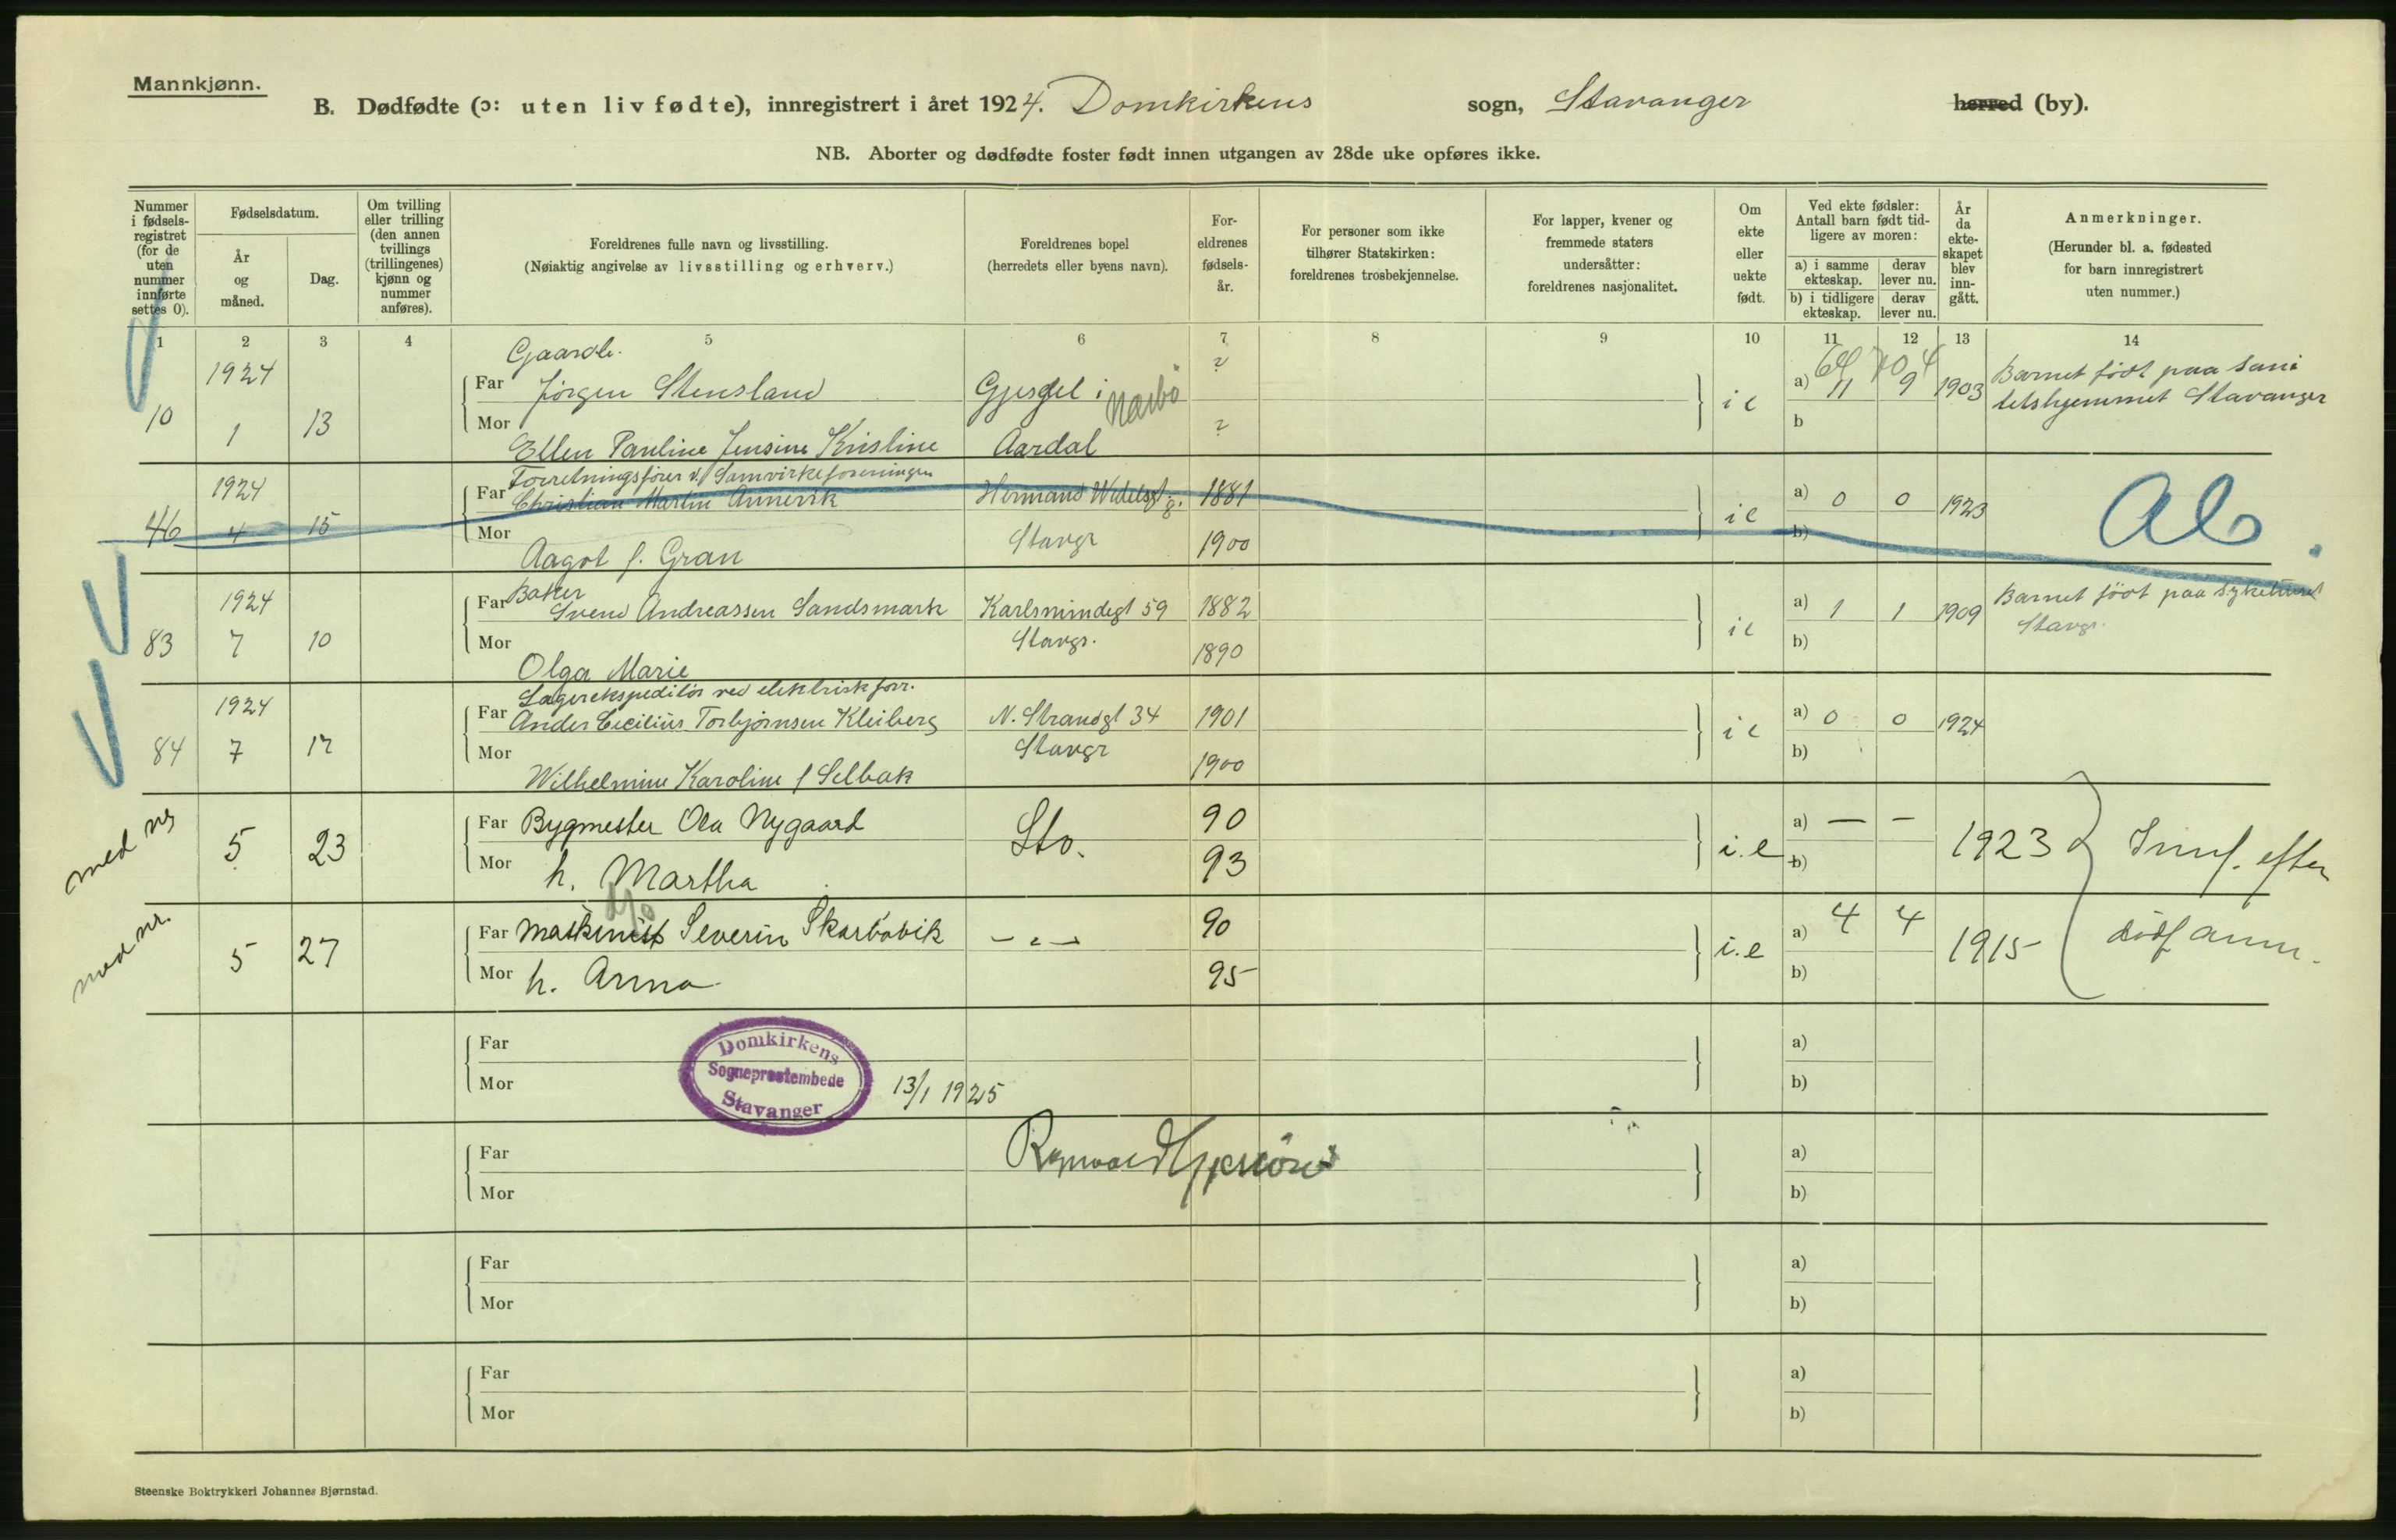 Mannkjønn.
B. Dødfødte (ɔ: uten liv fødte), innregistrert i året 1924. Domkirkens sogn, Stavanger herred (by).
NB. Aborter og dødfødte foster født innen utgangen av 28de uke opføres ikke.
Nummer i fødsels-registret (for de uten nummer innførte settes 0).
Fødselsdatum.
År og måned.
Dag.
Om tvilling eller trilling (den annen tvillings (trillingenes) kjønn og nummer anføres).
Foreldrenes fulle navn og livsstilling.
(Nøiaktig angivelse av livsstilling og erhverv.)
Foreldrenes bopel
(herredets eller byens navn).
For-eldrenes fødsels-år.
For personer som ikke tilhører Statskirken: foreldrenes trosbekjennelse.
For lapper, kvener og fremmede staters undersåtter: foreldrenes nasjonalitet.
Om ekte eller uekte født.
Ved ekte fødsler: Antall barn født tid-ligere av moren:
a) i samme ekteskap.
derav lever nu.
b) i tidligere ekteskap.
derav lever nu.
År da ekte-skapet blev inn-gått.
Anmerkninger.
(Herunder bl. a. fødested for barn innregistrert uten nummer.)
1 2 3 4 5 6 7 8 9 10 11 12 13 14
Gaardb.
1924 Far Jörgen Stensland Gjesdel i Narbö ? a) 11 9 1903 Barnet födt paa Sani
10 1 13 Mor Ellen Pauline Jensine Kristine Aardal ? i e b tetshjemmet Stavanger
Forretningsförer v/ Samvirkeforeningen
1924 Far Christian Martin Annevik Hermand Wedelsgt. 1881 a) 0 0 1923 Ab.
46 4 15 Mor Aagot f. Gran Stavgr 1900 i e b)
Baker
1924 Far Svend Andreassen Sandsmark Karlsmindegt 59 1882 a) 1 1 1909 Barnet födt paa Sykehuset
83 7 10 Mor Olga Marie Stavgr. 1890 i e b) Stavgr.
Lagerekspeditör ved elektrisk forr.
1924 Far Ander Cecilius Torbjörnsen Kleiberg N. Strandgt 34 1901 a) 0 0 1924
84 7 17 Mor Wilhelmine Karoline f Selbak Stavgr 1900 i e b)
med nr 5 23 Far Bygmester Ola Nygaard Sto. 90 i.e a) — — 1923 Innf. efter
Mor h. Martha 93 b)
med nr. 5 27 Far Maskinist Severin Skarbövik — " — 90 i.e a) 4 4 1915 dödf anm.
Mor h. Anna 95 b)
Far a)
Mor b)
Domkirkens
Sogneprestembede
Stavanger
13/1 1925
Far a)
Mor b)
Far a)
Mor b)
Far a)
Mor b)
Steenske Boktrykkeri Johannes Bjørnstad.